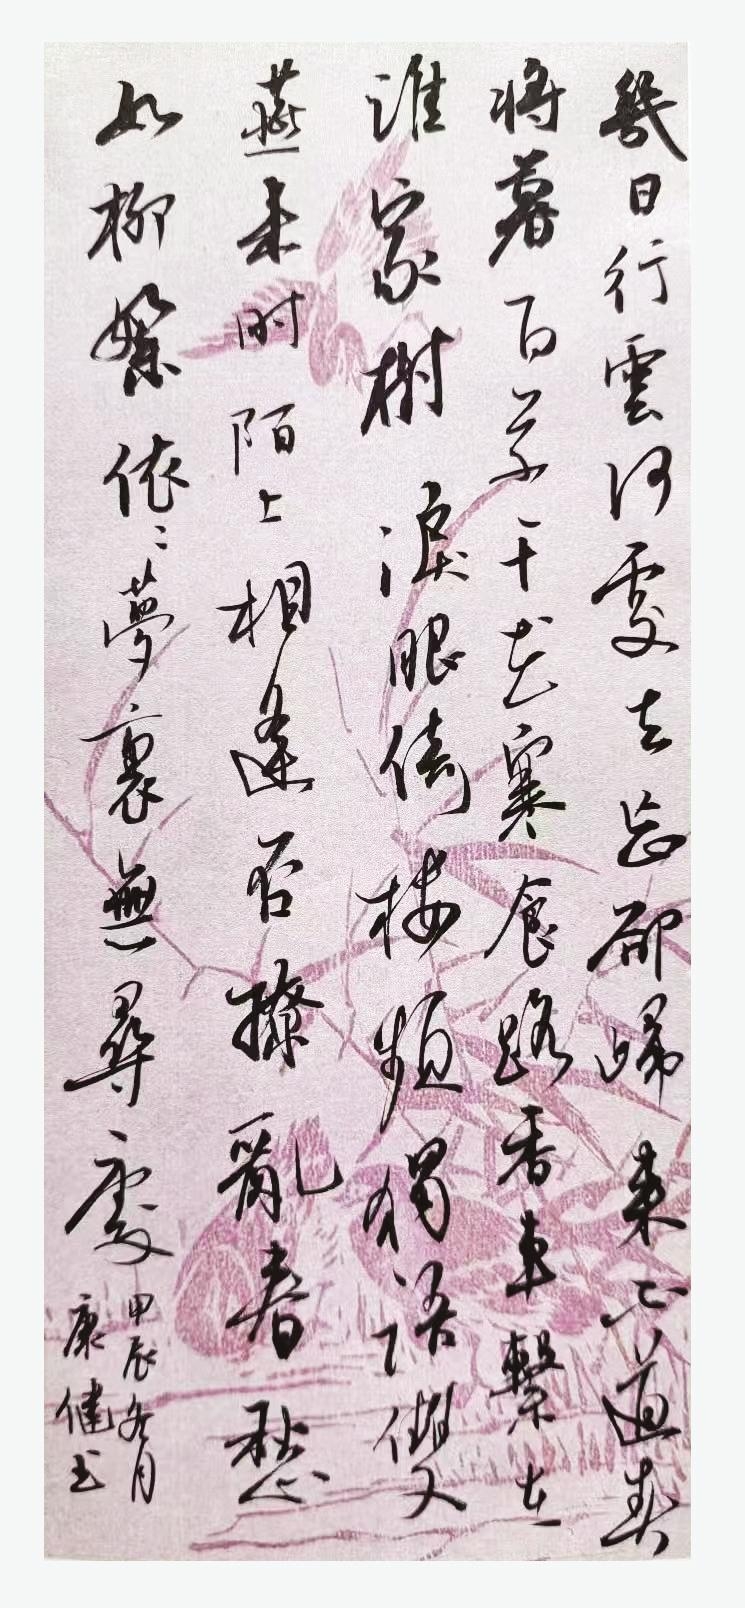 幾日行雲何處去忘卻歸來不道春
將暮百草千花寒食路香車繫在
誰家樹 淚眼倚樓頻獨語雙
燕來時陌上相逢否撩亂春愁
如柳絮依〻夢裏無尋處
甲辰冬月
康健書